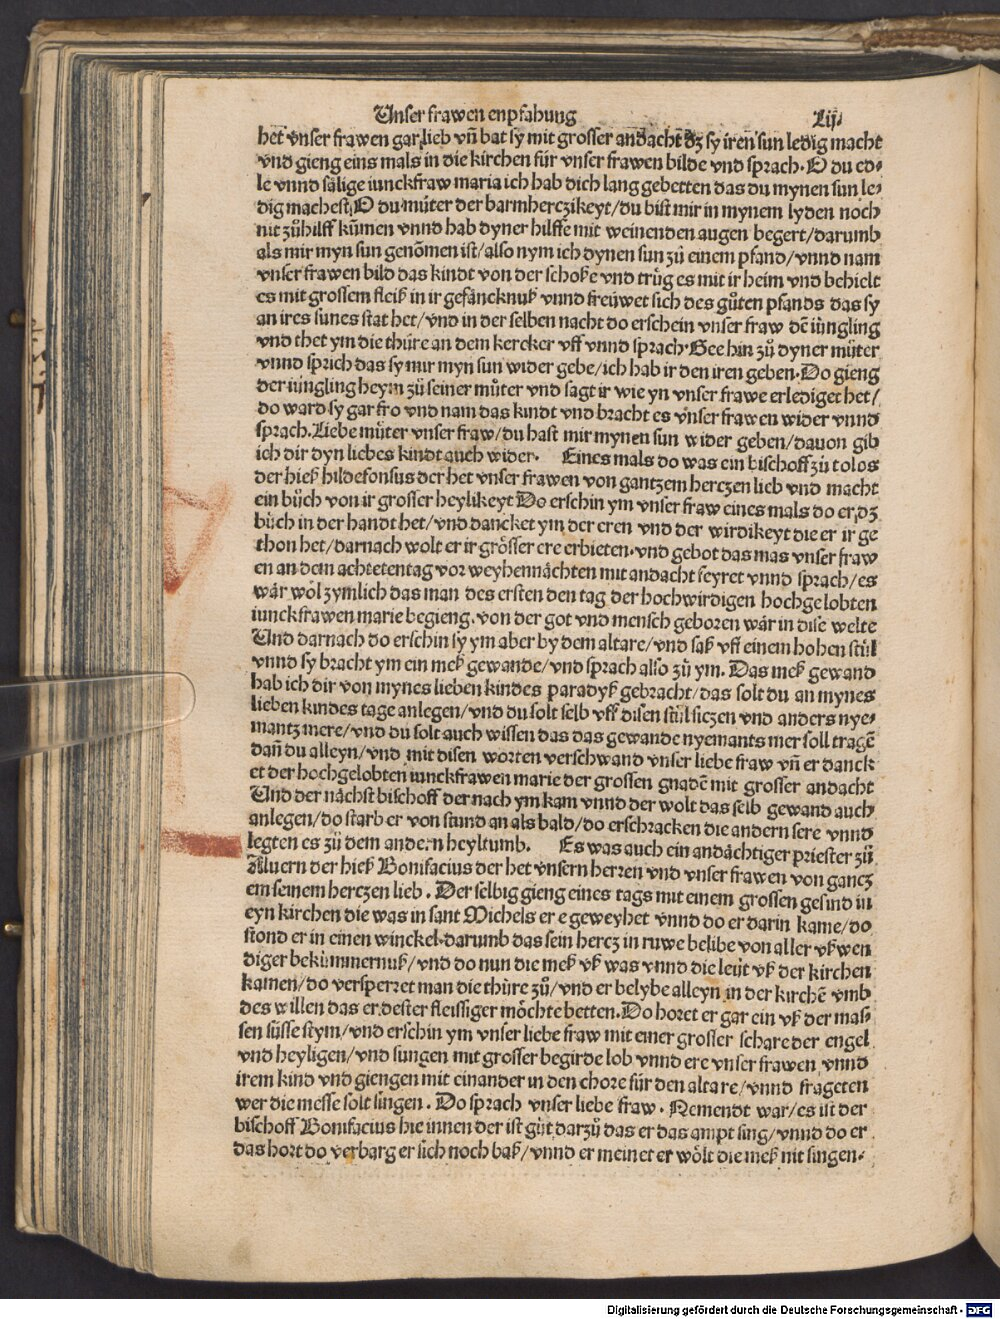 Unser frawen enpfahung Lij.
het vnser frawen gar lieb vñ bat sy mit grosser andacht dz sy iren sun ledig macht
vnd gieng eins mals in die kirchen für vnser frawen bilde vnd sprach. O du ed-
le vnnd sälige iunckfraw maria ich hab dich lang gebetten das du mynen sun le-
dig machest/ O du můter der barmherczikeyt/ du bist mir in mynem lyden noch
nit zůhilff kūmen vnnd hab dyner hilffe mit weinenden augen begert/ darumb
als mir myn sun genōmen ist/ also nym ich dynen sun zů einem pfand/ vnnd nam
vnser frawen bild das kindt von der schoße vnd trůg es mit ir heim vnd behielt
es mit grossem fleiß in ir gefäncknuß vnnd freüwet sich des gůten pfands das sy
an ires sunes stat het/ vnd in der selben nacht do erschein vnser fraw dē iüngling
vnd thet ym die thüre an dem kercker vff vnnd sprach. Gee hin zů dyner můter
vnnd sprich das sy mir myn sun wider gebe/ ich hab ir den iren geben. Do gieng
der iüngling heym zů seiner můter vnd sagt ir wie yn vnser frawe erlediget het/
do ward sy gar fro vnd nam das kindt vnd bracht es vnser frawen wider vnnd
sprach. Liebe můter vnser fraw/ du hast mir mynen sun wider geben/ dauon gib
ich dir dyn liebes kindt auch wider. Eines mals do was ein bischoff zů tolos
der hieß hildefonsus der het vnser frawen von gantzem herczen lieb vnd macht
ein bůch von ir grosser heylikeyt Do erschin ym vnser fraw eines mals do er dz
bůch in der handt het/ vnd dancket ym der eren vnd der wirdikeyt die er ir ge
thon het/ darnach wolt er ir grösser ere erbieten. vnd gebot das mas vnser fraw
en an dem achtetentag vor weyhennächten mit andacht feyret vnnd sprach/ es
wär wöl zymlich das man des ersten den tag der hochwirdigen hochgelobten
iunckfrawen marie begieng. von der got vnd mensch geboren wär in dise welte
Und darnach do erschin sy ym aber by dem altare/ vnd saß vff einem hohen stůl
vnnd sy bracht ym ein meß gewande/ vnd sprach also zů ym. Das meß gewand
hab ich dir von mynes lieben kindes paradyß gebracht/ das solt du an mynes
lieben kindes tage anlegen/ vnd du solt selb vff disen stůl siczen vnd anders nye-
mantz mere/ vnd du solt auch wissen das das gewande nyemants mer soll tragē
dañ du alleyn/ vnd mit disen worten verschwand vnser liebe fraw vñ er danck
et der hochgelobten iunckfrawen marie der grossen gnadē mit grosser andacht
Und der nächst bischoff der nach ym kam vnnd der wolt das selb gewand auch
anlegen/ do starb er von stund an als bald/ do erschracken die andern sere vnnd
legten es zů dem andern heyltumb. Es was auch ein andächtiger priester zů
Aluern der hieß Bonifacius der het vnsern herren vnd vnser frawen von gancz
em seinem herczen lieb. Der selbig gieng eines tags mit einem grossen gesind in
eyn kirchen die was in sant Michels er e geweyhet vnnd do er darin kame/ do
stond er in einen winckel. darumb das sein hercz in ruwe belibe von aller vßwen
diger bekümmernuß/ vnd do nun die meß vß was vnnd die leüt vß der kirchen
kamen/ do versperret man die thüre zů/ vnd er belybe alleyn in der kirchē vmb
des willen das er dester fleissiger möchte betten. Do horet er gar ein vß der mas-
sen süsse stym/ vnd erschin ym vnser liebe fraw mit einer grosser schare der engel
vnd heyligen/ vnd sungen mit grosser begirde lob vnnd ere vnser frawen vnnd
irem kind vnd giengen mit einander in den chore für den altare/ vnnd frageten
wer die messe solt singen. Do sprach vnser liebe fraw. Nemendt war/ es ist der
bischoff Bonifacius hie innen der ist gůt darzů das er das ampt sing/ vnnd do er
das hort do verbarg er sich noch baß/ vnnd er meinet er wölt die meß nit singen.
Digitalisierung gefördert durch die Deutsche Forschungsgemeinschaft - DFG